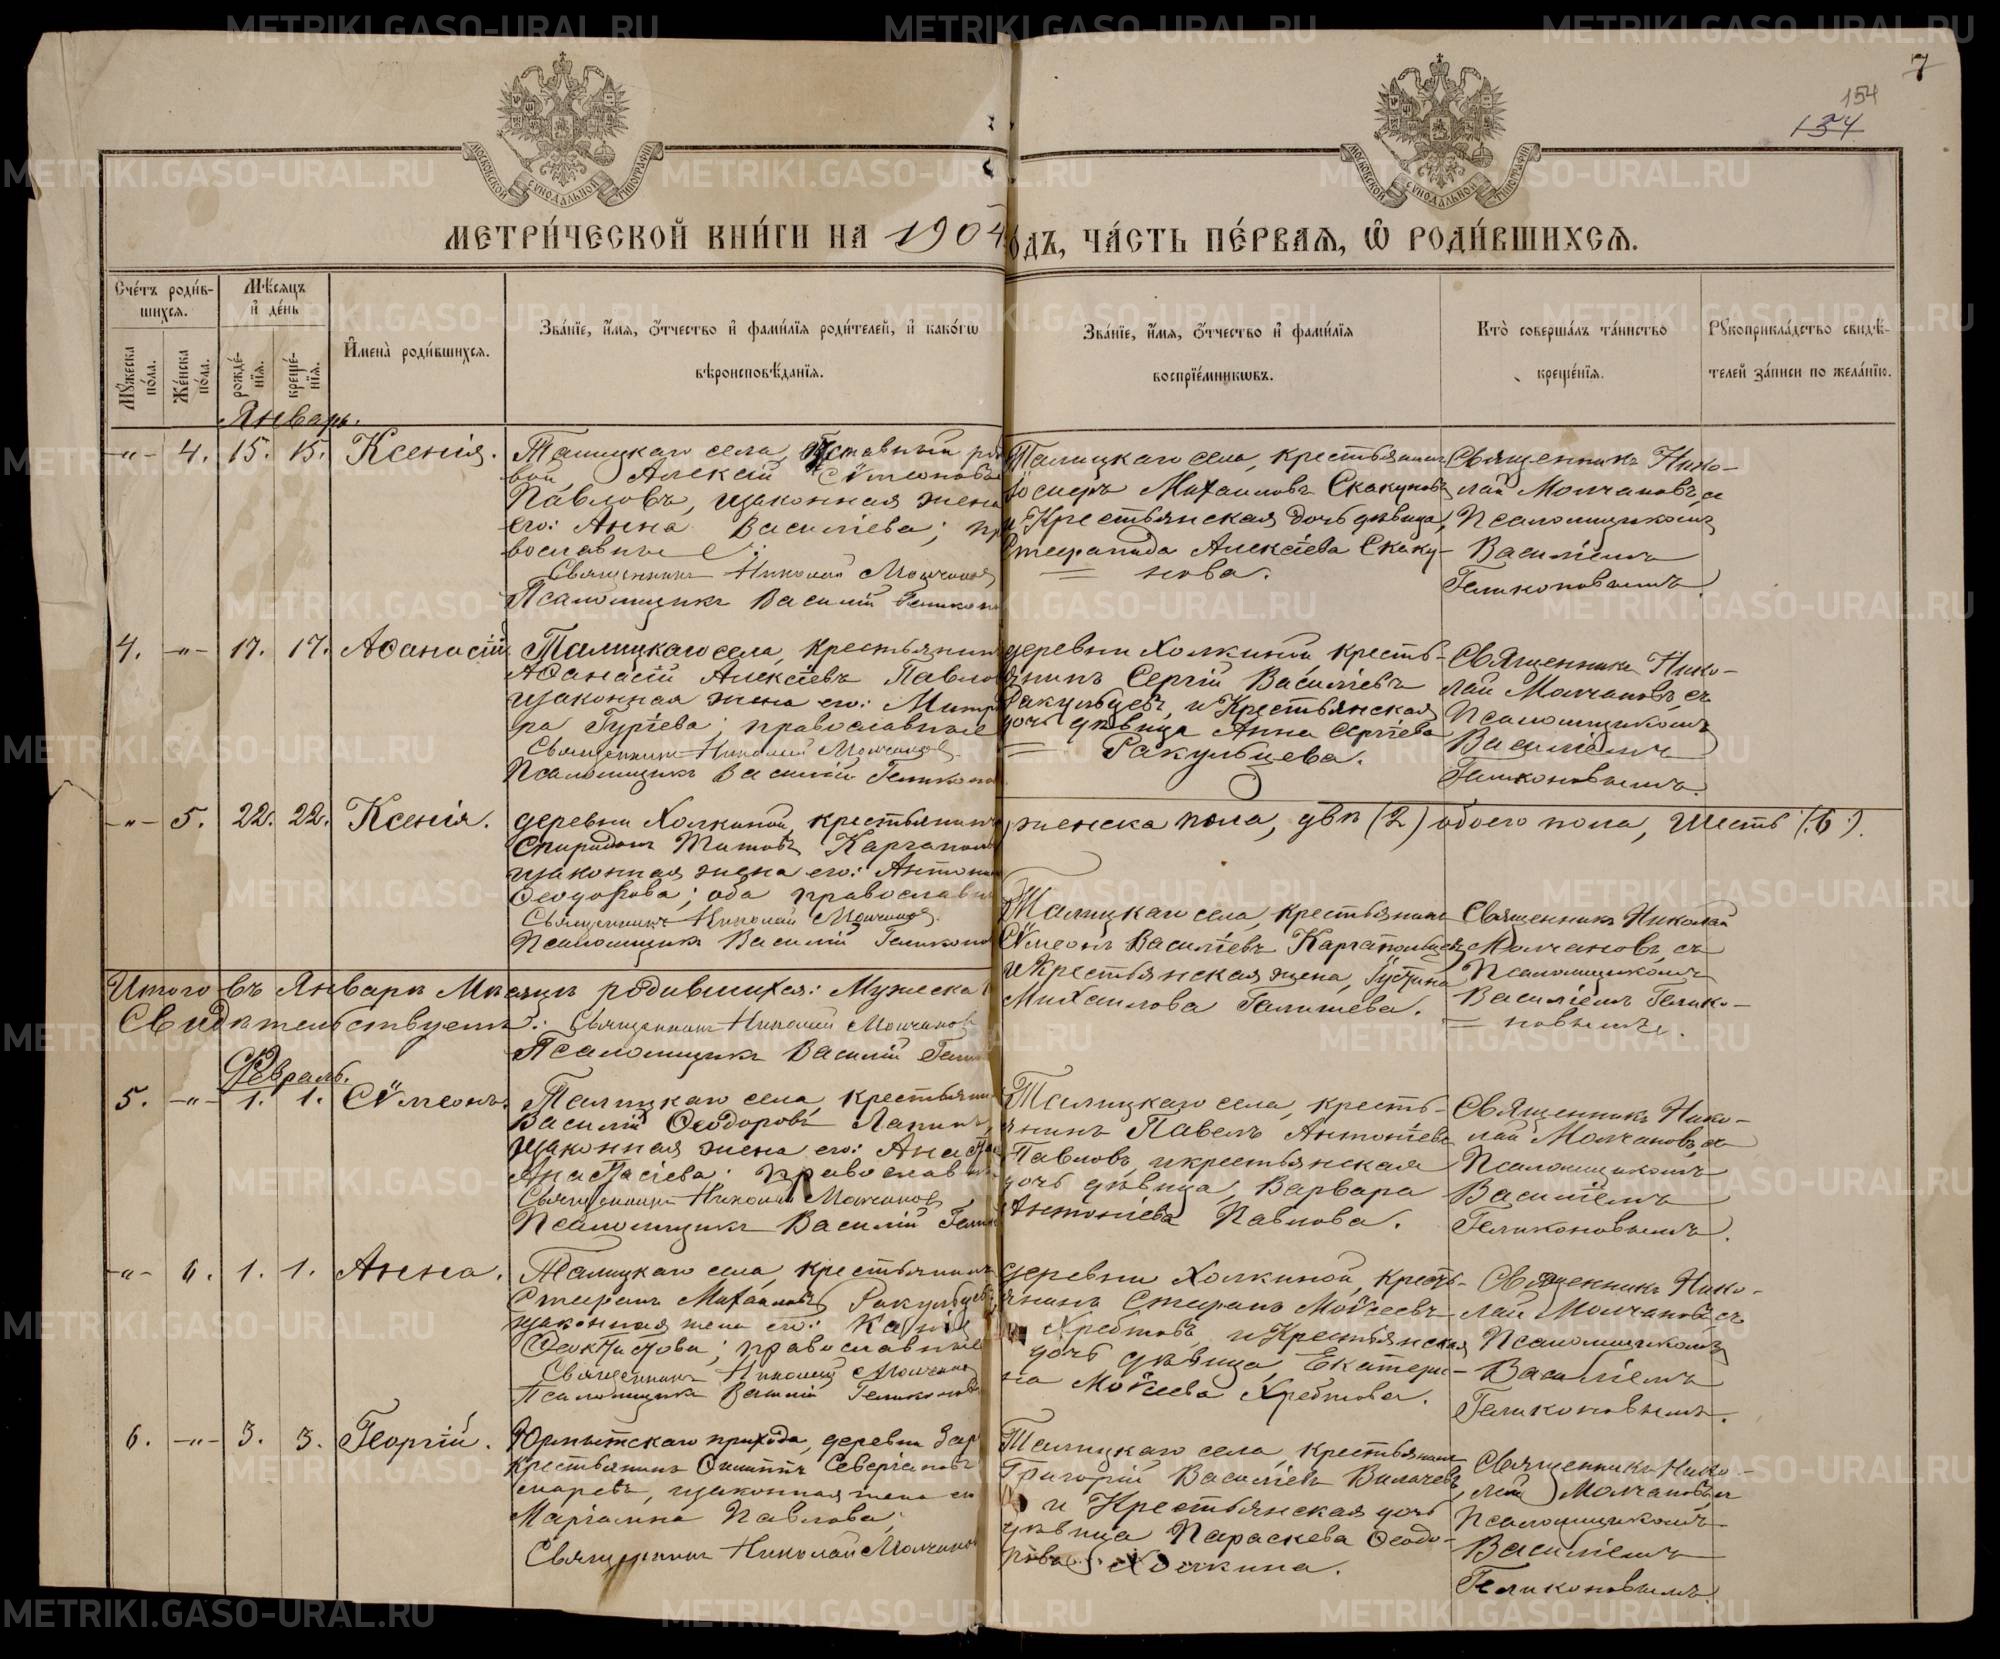 7
154
134
МОСКОВСКОЙ СѴНОДАЛЬНОЙ ТИПОГРАФІИ
МОСКОВСКОЙ СѴНОДАЛЬНОЙ ТИПОГРАФІИ
МЕТРИ́ЧЕСКОЙ КНИ́ГИ НА 1904
ОДЪ, ЧА́СТЬ ПЕ́РВАЯ, Ѡ҆ РОДИ́ВШИХСЯ.
Сче́тъ роди́в-
шихся.
Мѣ́сяцъ
и҆ де́нь
Мꙋ́жеска
по́ла.
Же́нска
по́ла.
рожде́-
нїя.
креще́-
нїя.
И҆мена̀ роди́вшихся.
Зва́нїе, и҆́мя, ѻ҆́тчество и҆ фами́лїя роди́телей, и҆ како́гѡ
вѣроисповѣ́данїя.
Зва́нїе, и҆́мя, ѻ҆́тчество и҆ фами́лїя
воспрїе́мникѡвъ.
Кто̀ соверша́лъ та́инство
креще́нїя.
Рꙋкоприкла́дство свидѣ́-
телей за́писи по жела́нїю.
Январь.
-"- 4. 15. 15. Ксенія.
Талицкаго села,
Алексій Сѵмеоновъ
Павловъ, и законная жена
его: Анна Васильева; пра
вославные
Священникъ Николай Молчановъ
Псаломщикъ Василій Геликоно
Талицкаго села, крестьянинъ
Михаиловъ Скакуновъ
и Крестьянская дочь дѣвица,
Стефанида Алексіева Скаку-
нова.
Священникъ Нико-
лай Молчановъ, съ
Псаломщикомъ
Василіемъ
Геликоновымъ.
4. -"- 17. 17. Аѳанасій
Талицкаго села, крестьянинъ
Аѳанасій Алексіевъ Павло
и законная жена его: Митро
ра Гуріева; православные
Священникъ Николай Молчановъ
Псаломщикъ Василій Геликоно
деревни Холкиной, кресть-
янинъ Сергій Василіевъ
Ракульцевъ, и Крестьянская
дочь дѣвица Анна Сергіева
Ракульцева.
Священникъ Нико-
лай Молчановъ, съ
Псаломщикомъ
Василіемъ
Геликоновымъ.
-"- 5. 22. 22. Ксенія.
деревни Холкиной, крестьянинъ
Спиридонъ Титовъ Каргапол
и законная жена его: Антони
Ѳеодорова; оба православн
Священникъ Николай Молчановъ.
Псаломщикъ Василій Геликоно
женска пола, двѣ (2) обоего пола, шесть (6).
Талицкаго села, крестьянинъ
Сѵмеонъ Василіевъ Каргапольцевъ
и Крестьянская жена, Іустина
Михаилова Галишева.
Священникъ Николай
Молчановъ, съ
Псаломщикомъ
Василіемъ Гелико-
новымъ.
Итого въ Январѣ Мѣсяцѣ родившихся: Мужеска
Свидѣтельствуемъ: Священникъ Николай Молчановъ
Псаломщикъ Василій Гели
Февраль.
5. -"- 1. 1. Сѵмеонъ.
Талицкаго села, крестьянин
Василій Ѳеодоровъ Лапинъ,
и законная жена его: Анаста
Анастасіева; православн
Священникъ Николай Молчановъ
Псаломщикъ Василій Гелик
Талицкаго села, кресть-
янинъ Павелъ Антоніевъ
Павловъ, и крестьянская
дочь дѣвица, Варвара
Антоніева Павлова.
Священникъ Нико-
лай Молчановъ, съ
Псаломщикомъ
Василіемъ
Геликоновымъ.
-"- 6. 1. 1. Анна.
Талицкаго села, крестьянинъ
Стефанъ Михаиловъ Ракульцев
и законная жена его:
Ѳеоктистова; православные
Священникъ Николай Молчанов
Псаломщикъ Василій Геликонов
деревни Холкиной, кресть-
янинъ Стефанъ Моѵсеевъ
Хребтовъ и Крестьянская
дочь дѣвица, Екатери-
на Моѵсеева Хребтова.
Священникъ Нико-
лай Молчановъ съ
Псаломщикомъ
Василіемъ
Геликоновымъ.
6. -"- 3. 3. Георгій.
Юрмытскаго прихода, деревни Зар
Крестьянинъ Севергіановъ
и законная жена ег
Маріамна Павлова;
Священникъ Николай Молчанов
Талицкаго села, крестьянинъ
Григорій Василіевъ Вилачевъ,
и Крестьянская дочь
дѣвица Параскева Ѳеодо-
рова Холкина.
Священникъ Нико-
лай Молчановъ, съ
Псаломщикомъ
Василіемъ
Геликоновымъ.
METRIKI.GASO-URAL.RU